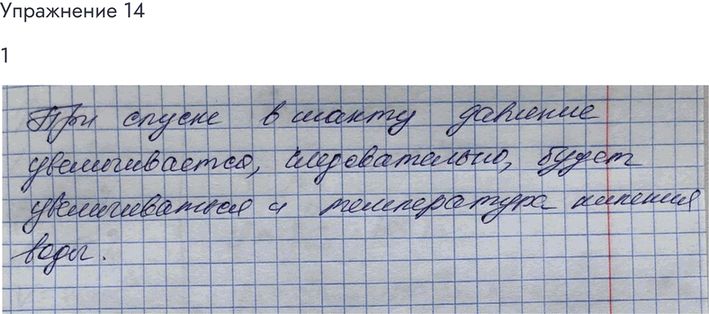 Упражнение 14
1
При спуске в шахту давление
увеличивается, следовательно, будет
увеличиваться и температура кипения
воды.